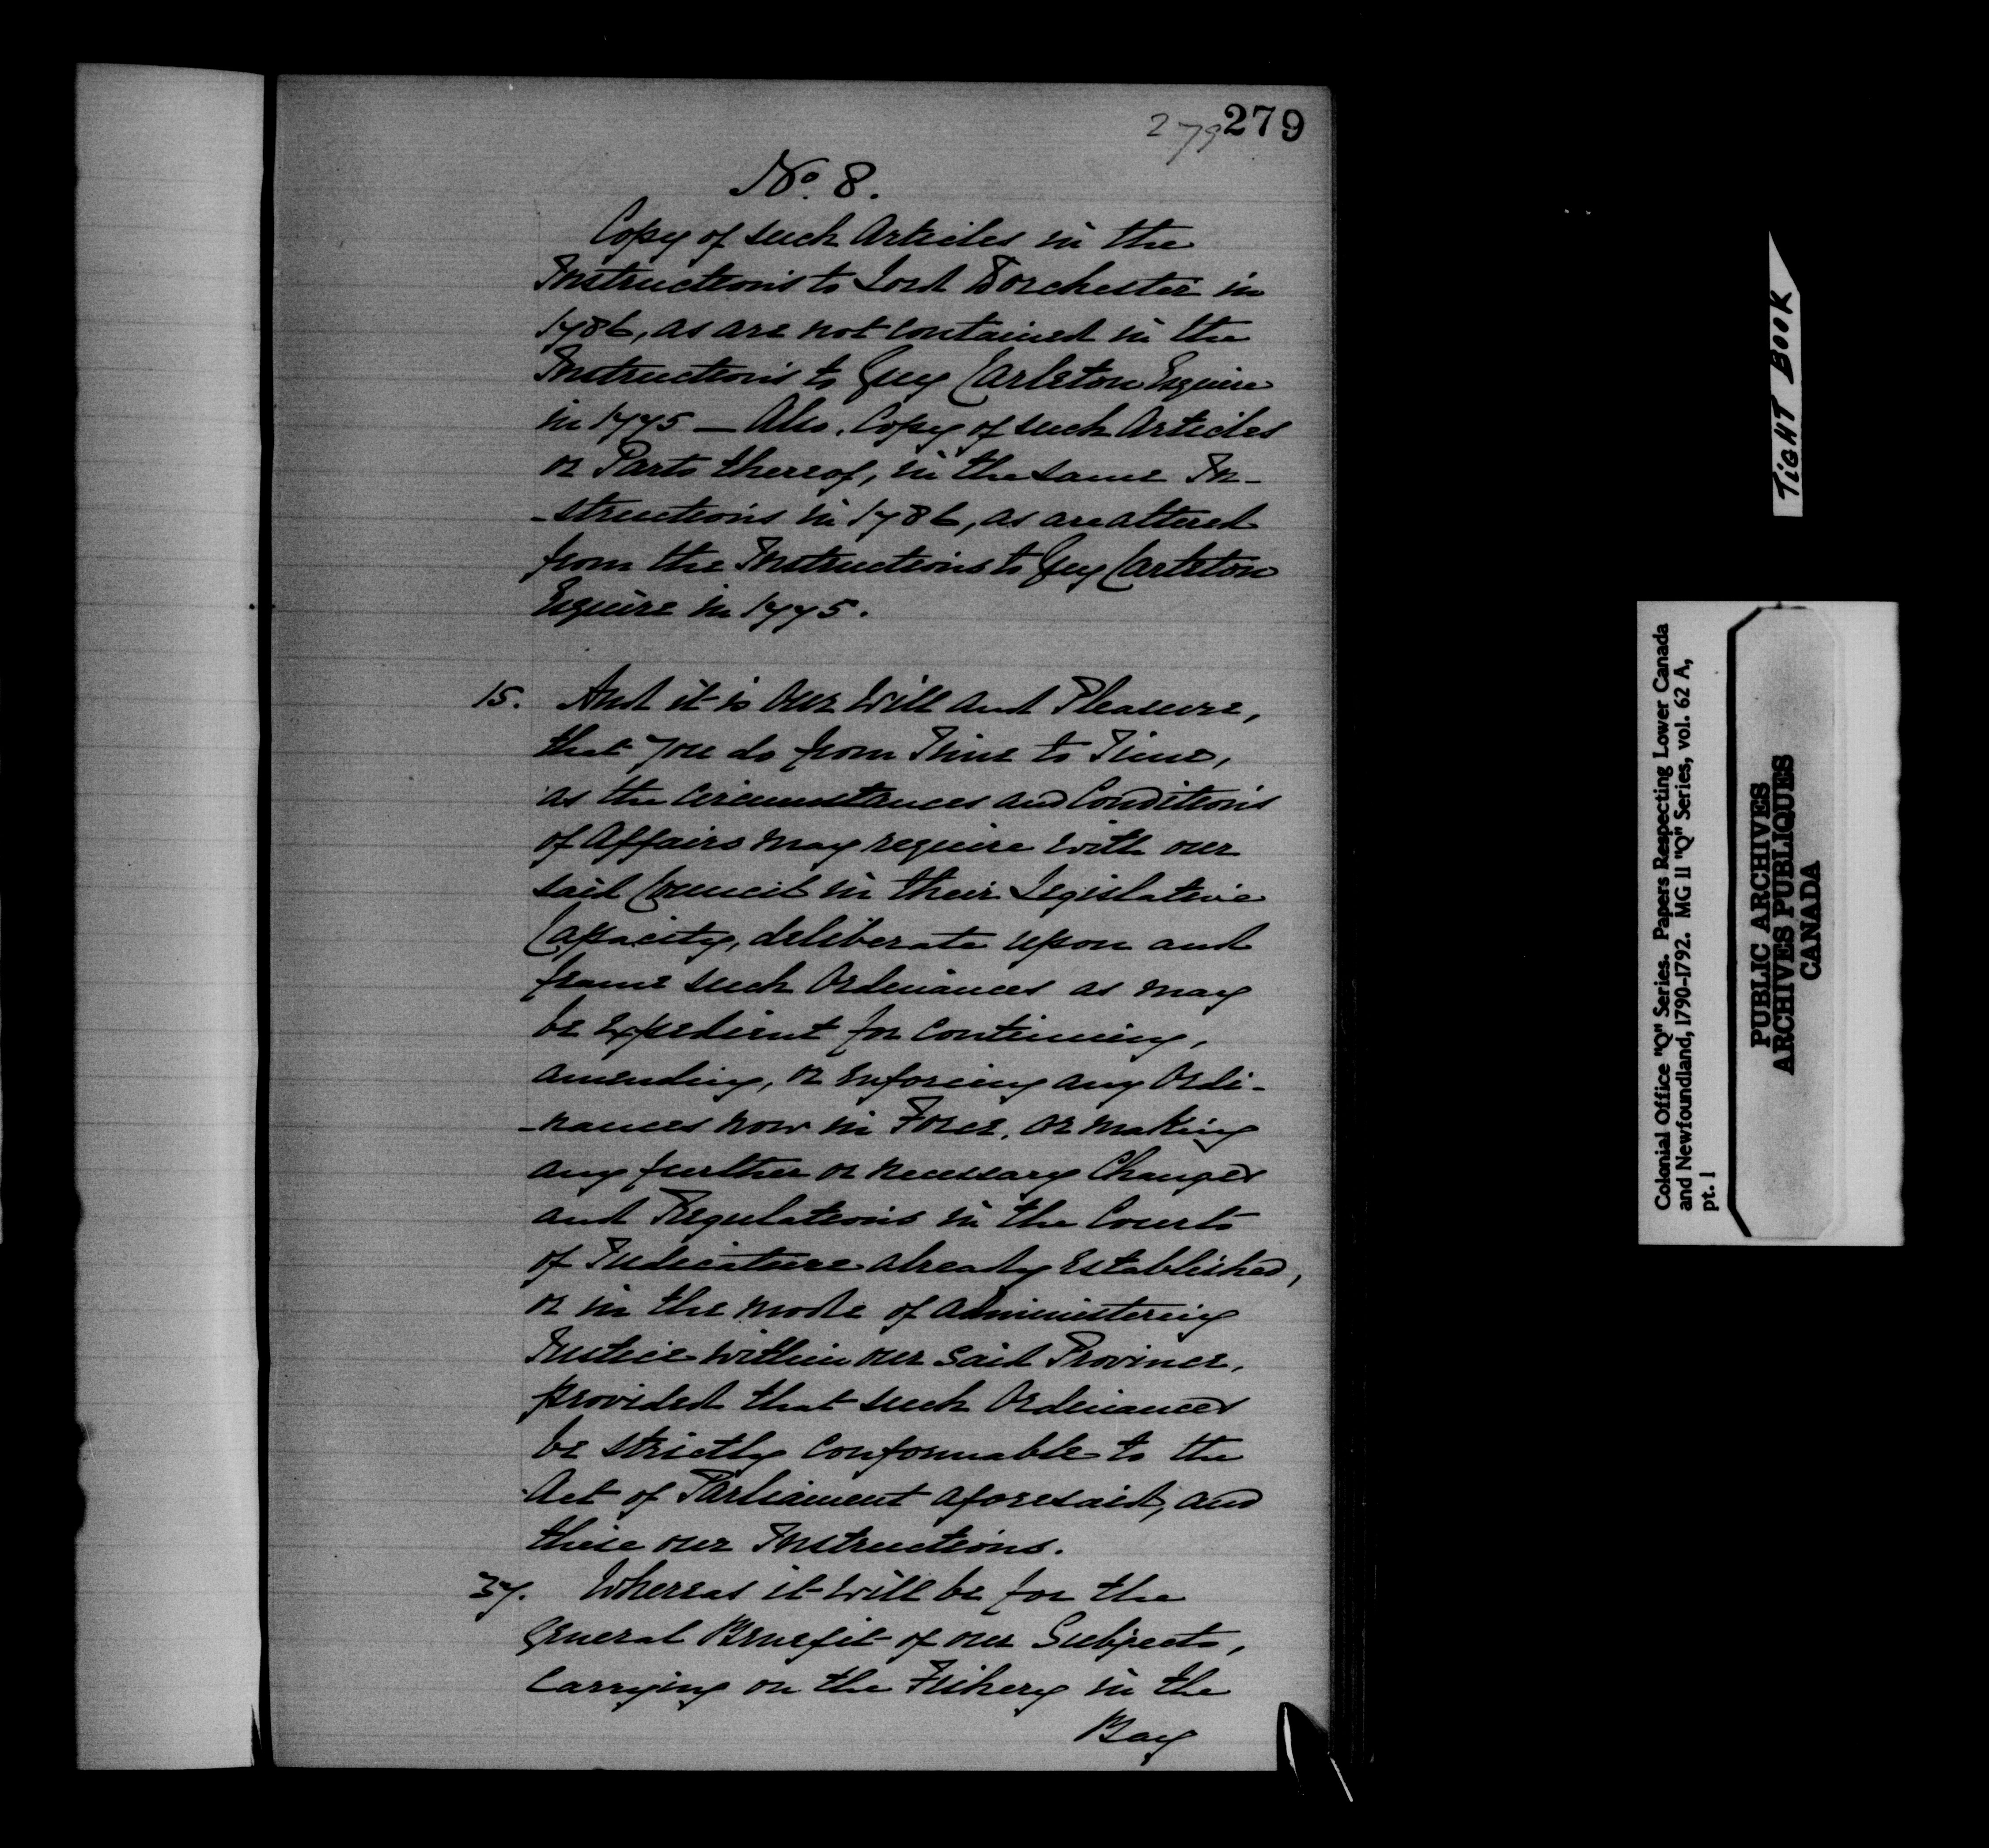 279 279
No. 8.
Copy of such Articles in the
Instructions to Lord Dorchester in
1786, as are not contained in the
Instructions to Guy Carleton Esquire
in 1775 — Also, Copy of such Articles
or Parts thereof, in the same In-
-structions in 1786, as are altered
from the Instructions to Guy Carleton
Esquire in 1775.
15. And it is Our Will and Pleasure,
that you do from Time to Time,
as the Circumstances and Conditions
of Affairs may require with our
said Council in their Legislative
Capacity, deliberate upon and
frame such Ordinances as may
be Expedient for continuing,
amending, or enforcing any Ordi-
-nances now in Force, or making
any further or necessary Changes
and Regulations in the Courts
of Judicature already Established,
or in the mode of administering
Justice within our said Province,
provided that such Ordinances
be strictly conformable to the
Act of Parliament aforesaid, and
these our Instructions.
37. Whereas it will be for the
general Benefit of our Subjects,
carrying on the Fishery in the
Bay
TIGHT BOOK
Colonial Office "Q" Series. Papers Respecting Lower Canada
and Newfoundland, 1790-1792. MG 11 "Q" Series, vol. 62 A,
pt. 1
PUBLIC ARCHIVES
ARCHIVES PUBLIQUES
CANADA